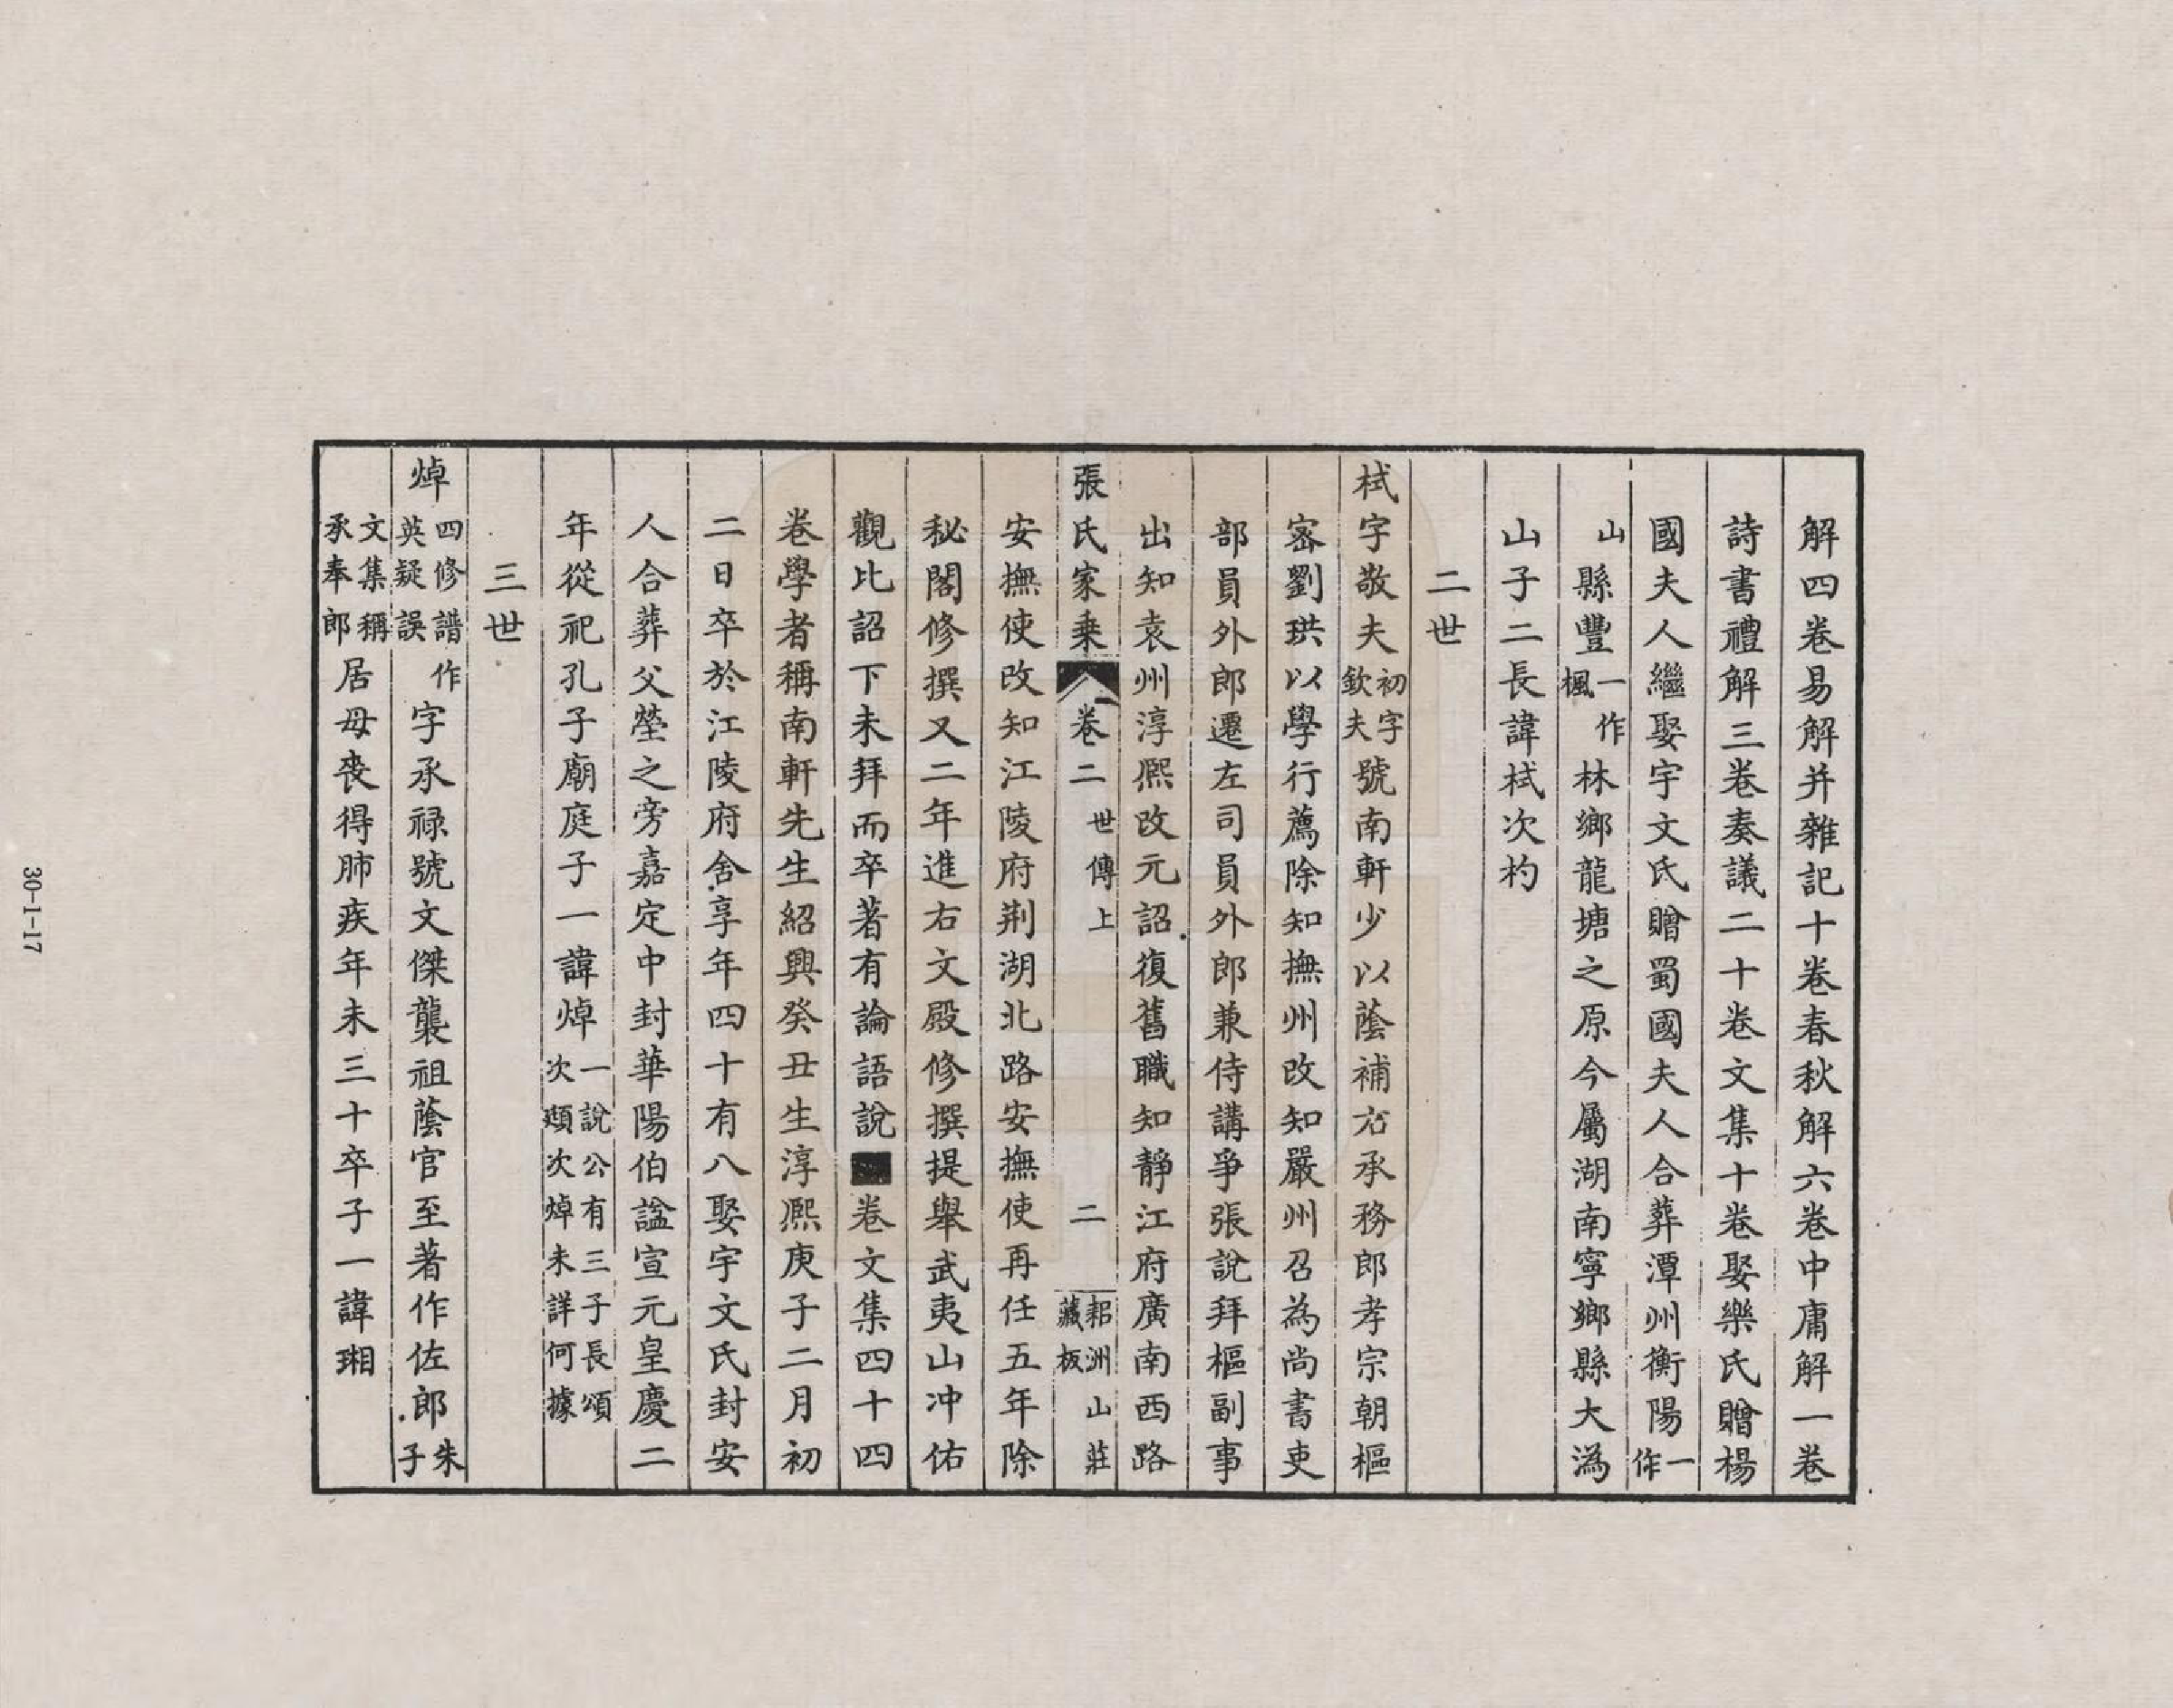 解四卷易解并雜記十卷春秋解六卷中庸解一卷
詩書禮解三卷奏議二十卷文集十卷娶樂氏贈楊
國夫人繼娶宇文氏贈蜀國夫人合葬潭州衡陽一作
山縣豐一作楓林鄉龍塘之原今屬湖南寧鄉縣大溈
山子二長諱栻次杓
二世
栻字敬夫初字欽夫號南軒少以蔭補右承務郎孝宗朝樞
密劉珙以學行薦除知撫州改知嚴州召為尚書吏
部員外郎遷左司員外郎兼侍講爭張說拜樞副事
出知袁州淳熙改元詔復舊職知靜江府廣南西路
張氏家乗 卷二 世傳上 二 耜洲山莊藏板
安撫使改知江陵府荆湖北路安撫使再任五年除
秘閣修撰又二年進右文殿修撰提舉武夷山冲佑
觀比詔下未拜而卒著有論語說■卷文集四十四
卷學者稱南軒先生紹興癸丑生淳熙庚子二月初
二日卒於江陵府舍享年四十有八娶宇文氏封安
人合葬父塋之旁嘉定中封華陽伯諡宣元皇慶二
年從祀孔子廟庭子一諱焯一說公有三子長頌次頵次焯未詳何據
三世
焯四修譜作英疑誤字承祿號文傑襲祖蔭官至著作佐郎朱子
文集稱承奉郎居母喪得肺疾年未三十卒子一諱琍
30-1-17